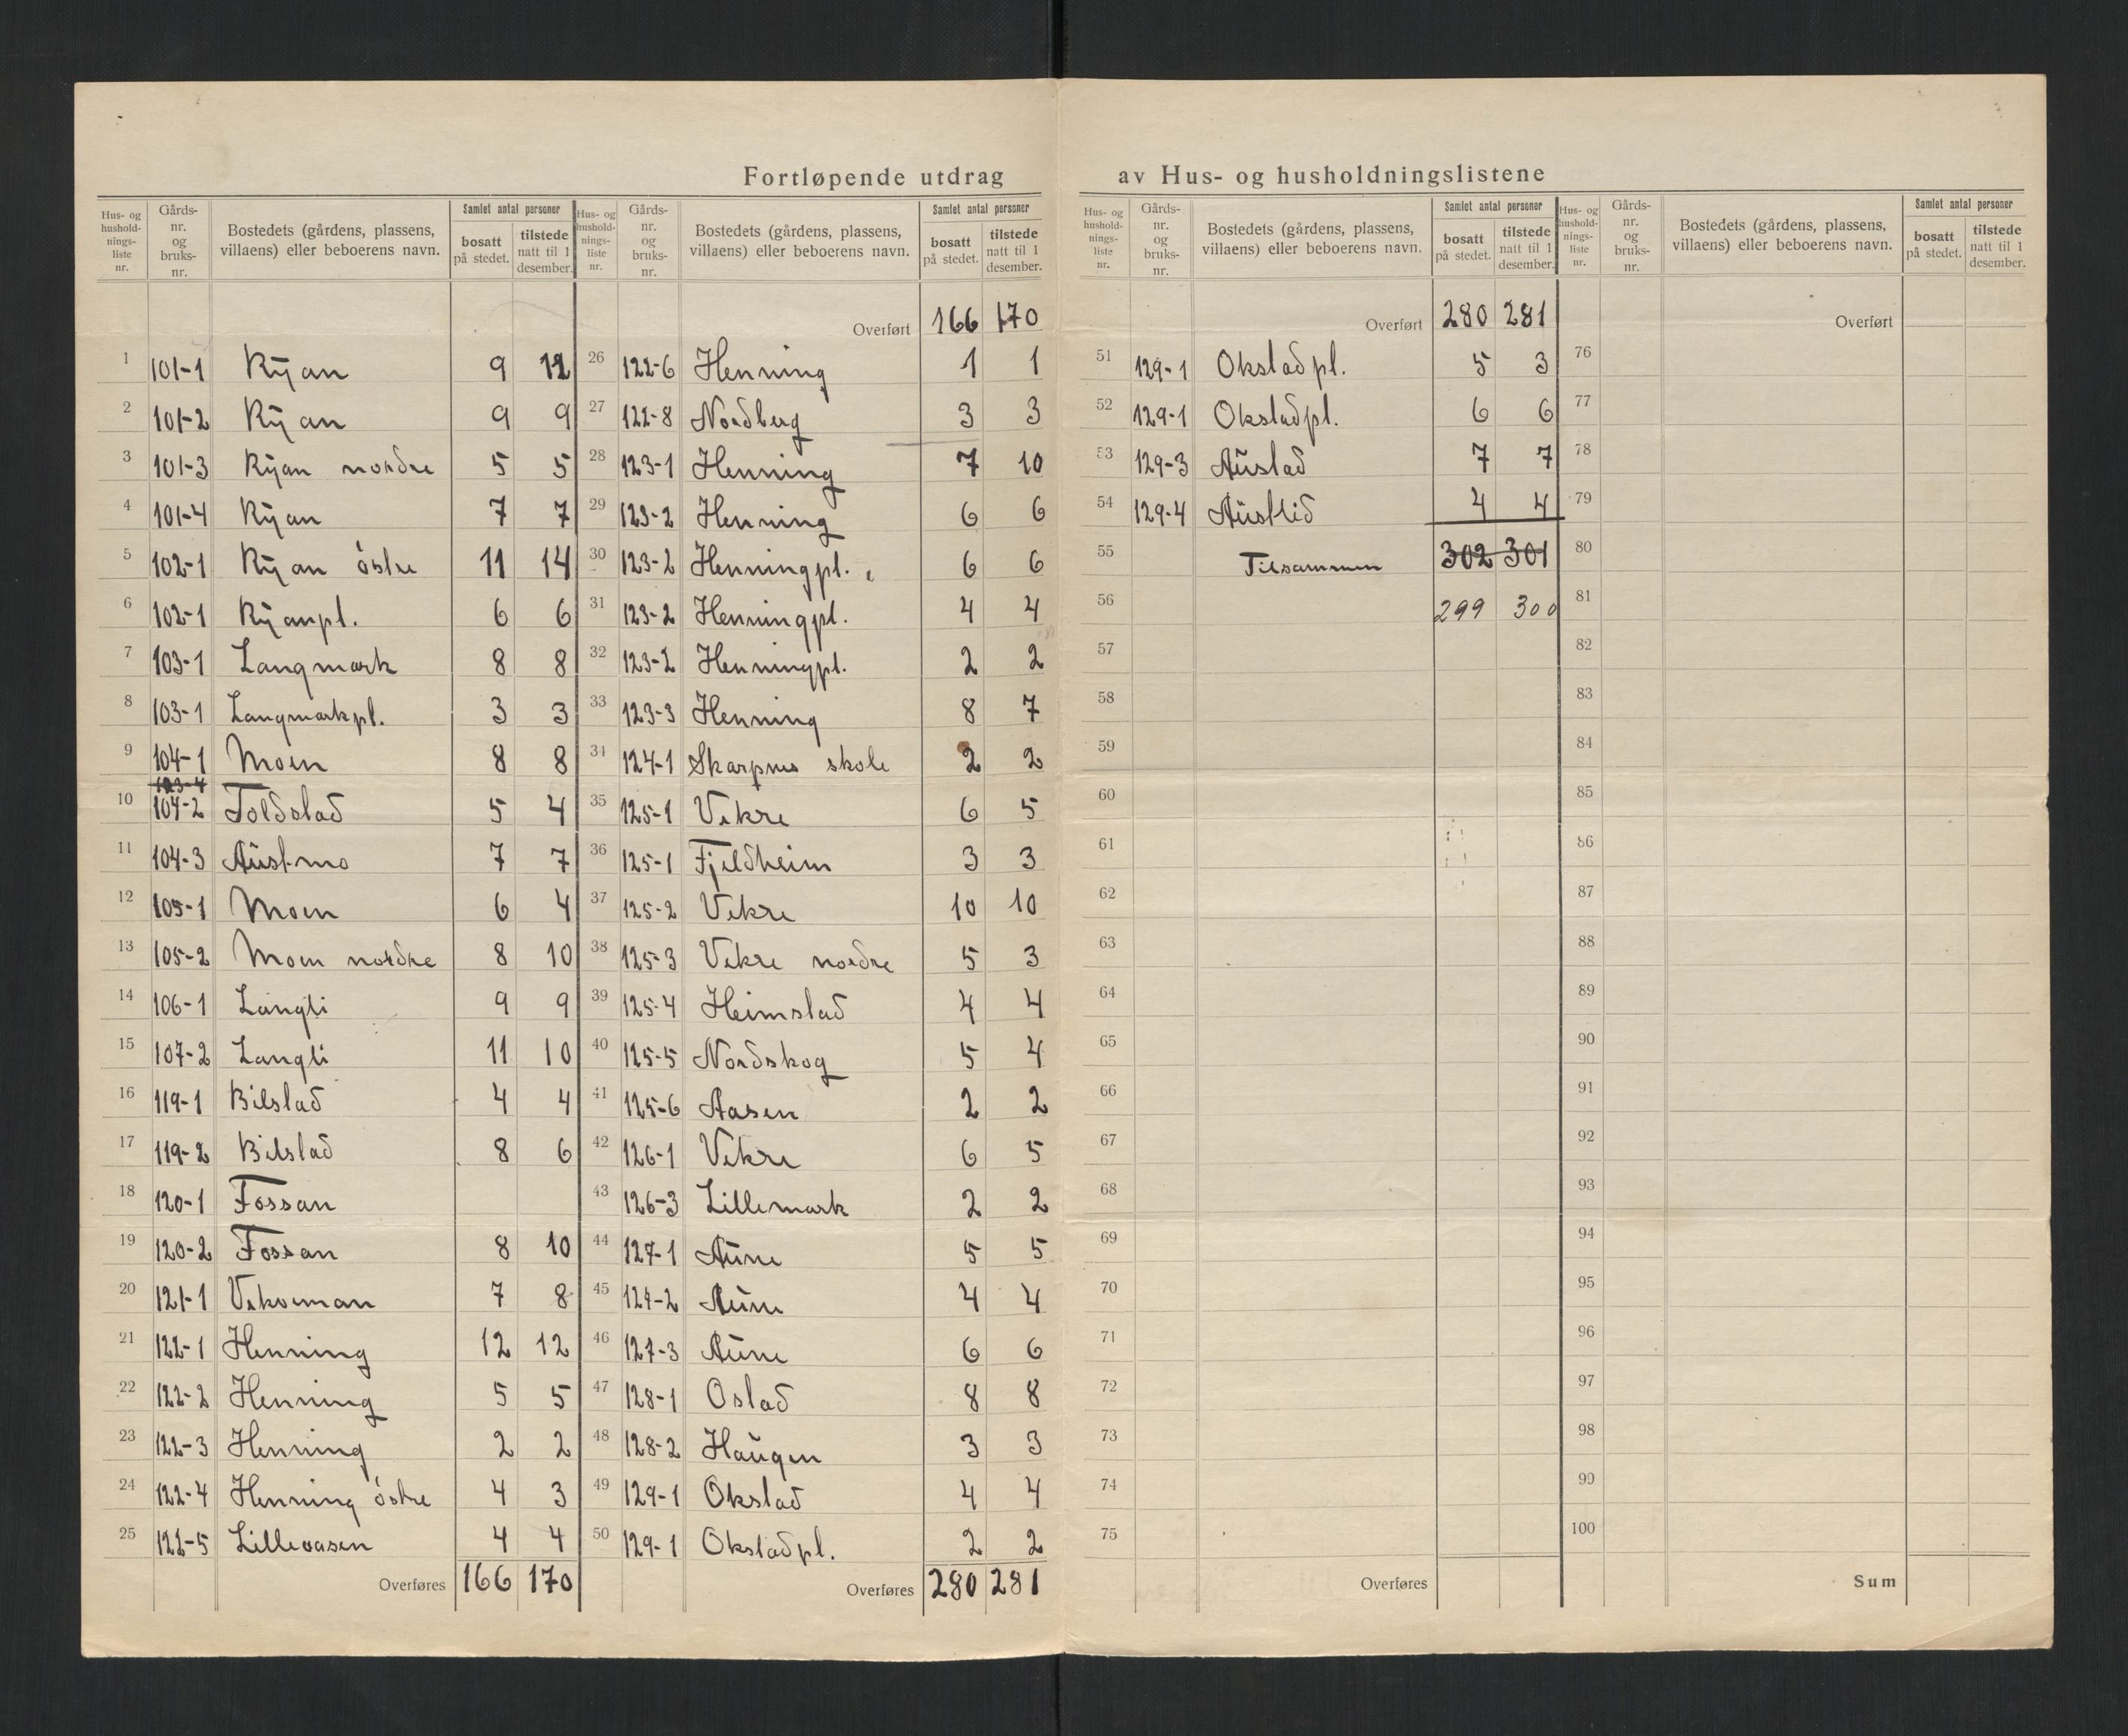 Fortløpende utdrag av Hus- og husholdningslistene
Hus- og hushold- nings- liste nr. Gårds- nr. og bruks- nr. Bostedets (gårdens, plassens, villaens) eller beboerens navn. Samlet antal personer bosatt på stedet. tilstede natt til 1 desember.
1 101-1 Ryan 9 12
2 101-2 Ryan 9 9
3 101-3 Ryan nordre 5 5
4 101-4 Ryan 7 7
5 102-1 Ryan östre 11 14
6 102-1 Ryanpl. 6 6
7 103-1 Langmark 8 8
8 103-1 Langmarkpl. 3 3
9 104-1 Moen 8 8
10 103-4 104-2 Foldstad 5 4
11 104-3 Aüstmo 7 7
12 105-1 Moen 6 4
13 105-2 Moen nordre 8 10
14 106-1 Langli 9 9
15 107-2 Langli 11 10
16 119-1 Bilstad 4 4
17 119-2 Bilstad 8 6
18 120-1 Fossan
19 120-2 Fossan 8 10
20 121-1 Vekveman 7 8
21 122-1 Henning 12 12
22 122-2 Henning 5 5
23 122-3 Henning 2 2
24 122-4 Henning östre 4 3
25 122-5 Lilleaasen 4 4
Overføres 166 170
Hus- og hushold- nings- liste nr. Gårds- nr. og bruks- nr. Bostedets (gårdens, plassens, villaens) eller beboerens navn. Samlet antal personer bosatt på stedet. tilstede natt til 1 desember.
Overført 166 170
26 122-6 Henning 1 1
27 122-8 Nordberg 3 3
28 123-1 Henning 7 10
29 123-2 Henning 6 6
30 123-2 Henningpl. 6 6
31 123-2 Henningpl. 4 4
32 123-2 Henningpl. 2 2
33 123-3 Henning 8 7
34 124-1 Skarpnes skole 2 2
35 125-1 Vekre 6 5
36 125-1 Fjeldheim 3 3
37 125-2 Vekre 10 10
38 125-3 Vekre nordre 5 3
39 125-4 Heimstad 4 4
40 125-5 Nordskog 5 4
41 125-6 Aasen 2 2
42 126-1 Vekre 6 5
43 126-3 Lillemark 2 2
44 127-1 Aüne 5 5
45 127-2 Aüne 4 4
46 127-3 Aüne 6 6
47 128-1 Ostad 8 8
48 128-2 Haügen 3 3
49 129-1 Okstad 4 4
50 129-1 Okstadpl. 2 2
Overføres 280 281
Hus- og hushold- nings- liste nr. Gårds- nr. og bruks- nr. Bostedets (gårdens, plassens, villaens) eller beboerens navn. Samlet antal personer bosatt på stedet. tilstede natt til 1 desember.
Overført 280 281
51 129-1 Okstadpl. 5 3
52 129-1 Okstadpl. 6 6
53 129-3 Aüstad 7 7
54 129-4 Aüstlid 4 4
55 Tilsammen 302 301
56 299 300
57
58
59
60
61
62
63
64
65
66
67
68
69
70
71
72
73
74
75
Overføres
Hus- og hushold- nings- liste nr. Gårds- nr. og bruks- nr. Bostedets (gårdens, plassens, villaens) eller beboerens navn. Samlet antal personer bosatt på stedet. tilstede natt til 1 desember.
Overført
76
77
78
79
80
81
82
83
84
85
86
87
88
89
90
91
92
93
94
95
96
97
98
99
100
Sum